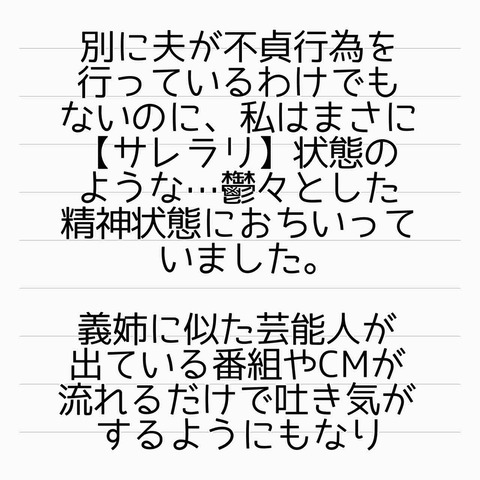 別に夫が不貞行為を
行っているわけでも
ないのに、私はまさに
【サレラリ】状態の
ような…鬱々とした
精神状態におちいって
いました。
義姉に似た芸能人が
出ている番組やCMが
流れるだけで吐き気が
するようにもなり